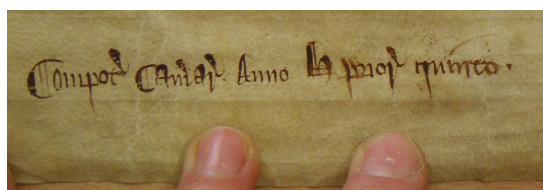 Compot' Cam'ar' Anno H prior' quinto.